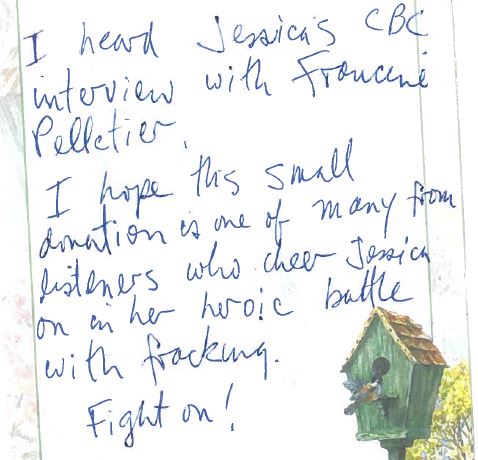 I heard Jessica's CBC
interview with Francine
Pelletier.
I hope this small
donation is one of many from
listeners who cheer Jessica
on in her heroic battle
with fracking.
Fight on!